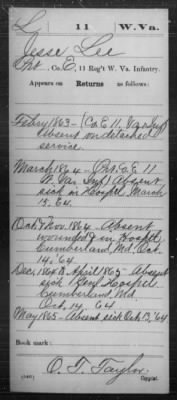 L | 11 | W. Va.
Jesse Lee
Pvt., Co. E, 11 Reg't W. Va. Infantry.
Appears on
Returns as follows:
Feb'y 1863 – (Co E 11 Va Inf)
Absent on detached
service.
March 1864 – Pvt. Co. E 11
W. Va. Inf) Absent
sick in Hospl, March
15, 64.
Oct & Nov. 1864 – Absent
wounded in Hospl
Cumberland, Md. Oct.
14, '64
Dec. 1864 to April 1865 – Absent
sick Genl Hospl
Cumberland, Md
Oct. 14 64
May 1865 – Absent sick Oct 13, '64
Book mark:
O. T. Taylor
(546) Copyist.